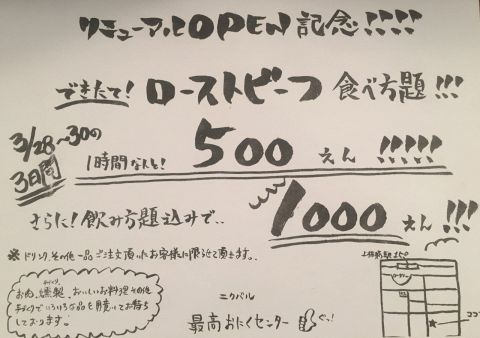 リニューアルOPEN記念!!!!
できたて!ローストビーフ食べ方題!!!
3/28~30の
3日間
1時間なんと! 500えん !!!!!
さらに!飲み方題込みで.. 1000えん!!!
※ドリンク、その他一品ご注文頂いたお客様に限らせて頂きます..
お肉、燻製、おいしいお料理その他
手づくりでいろいろな品を用意してお待ち
しております!
ニクバル
最高おにくセンター ぐっ!
ココ